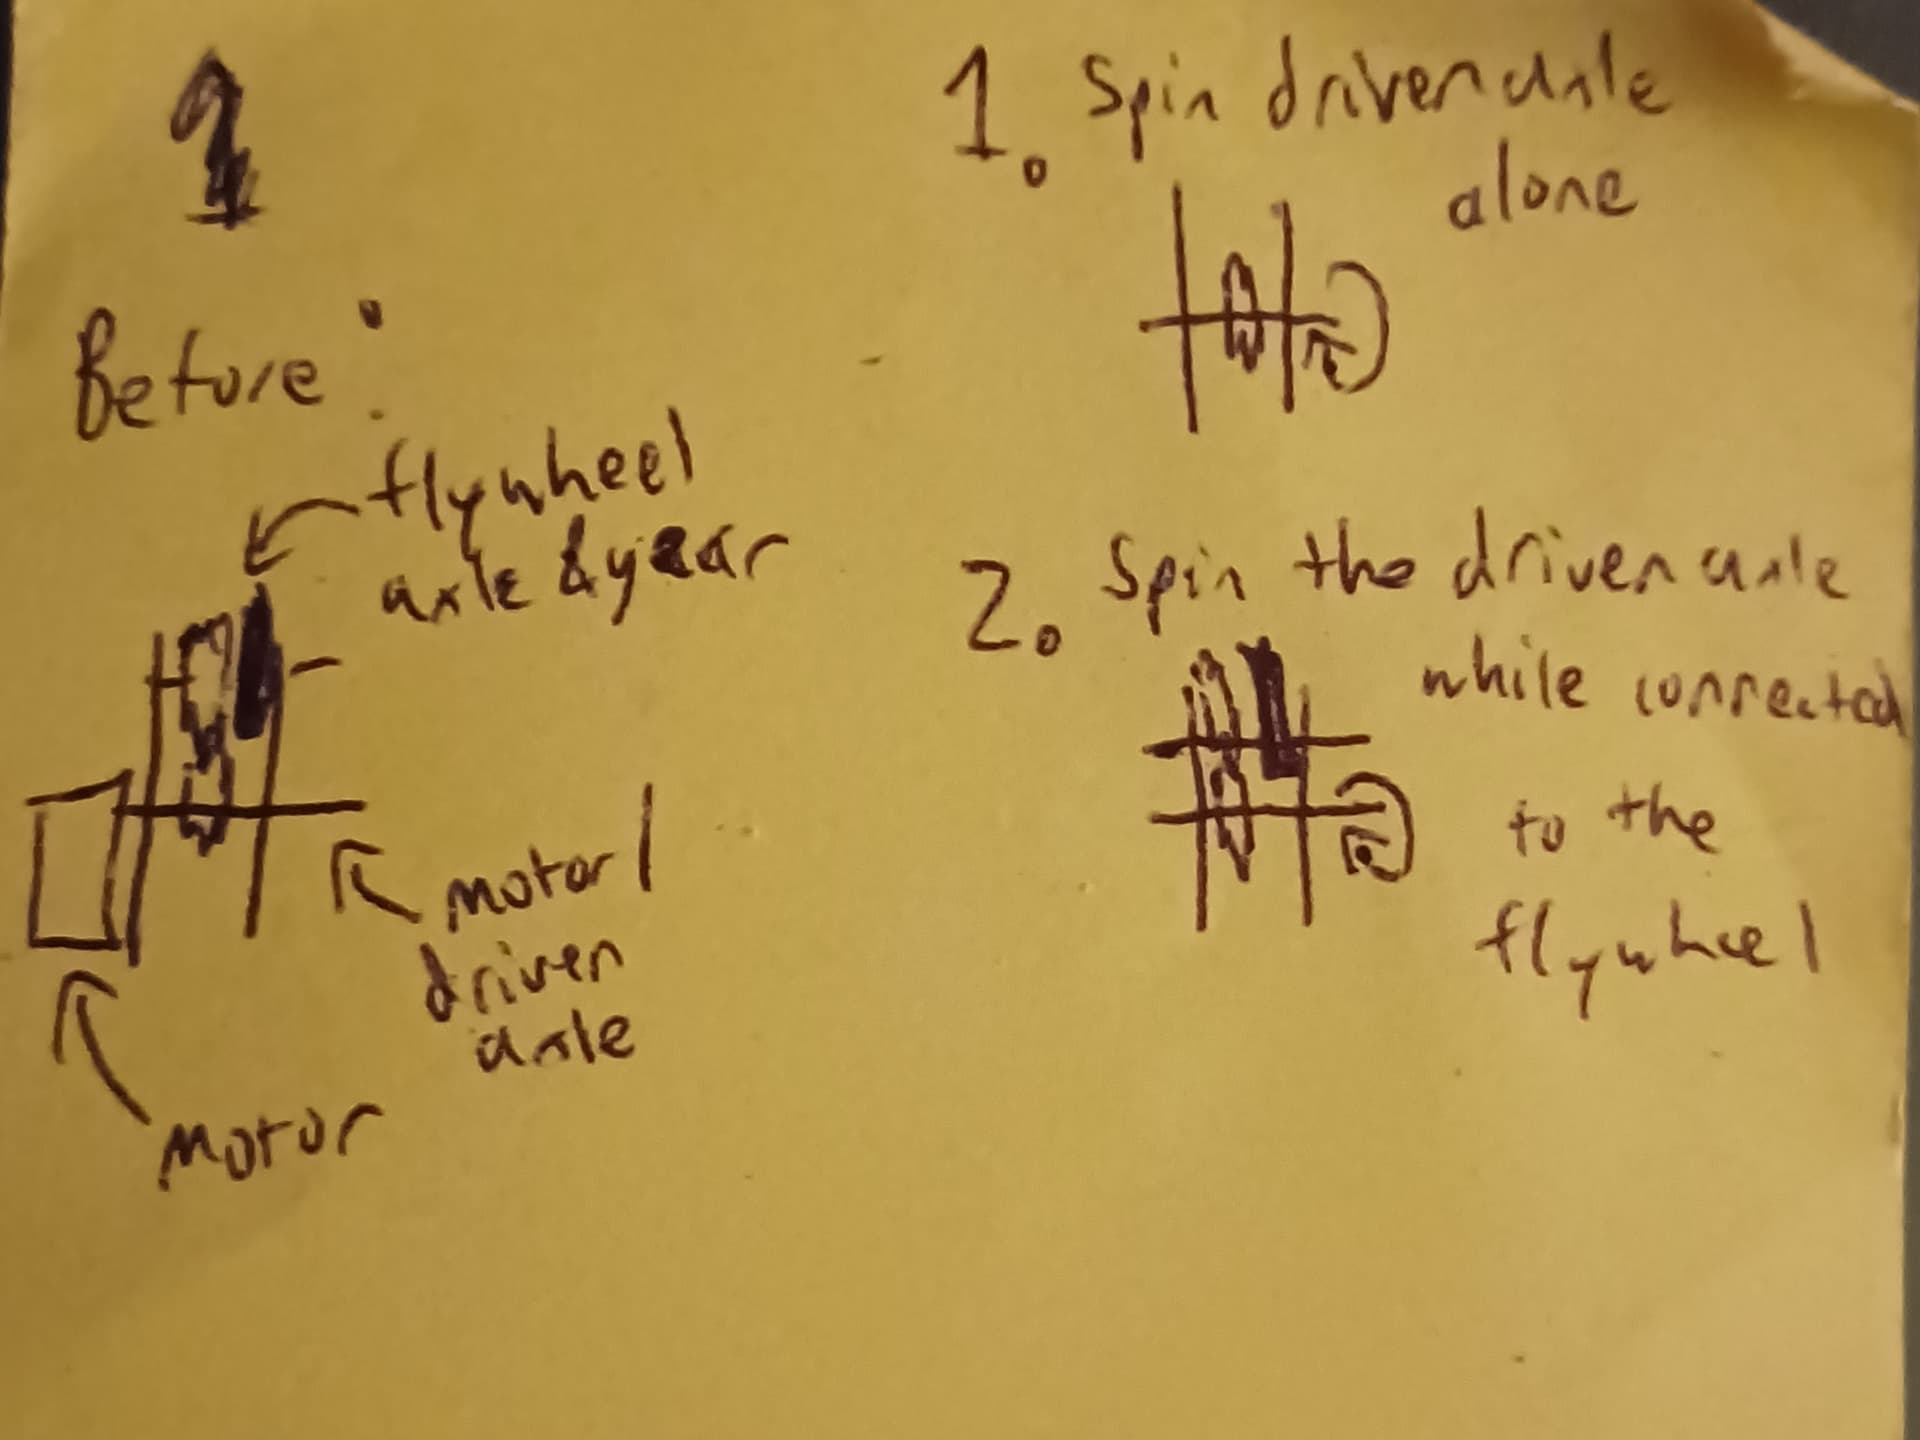 1
Before:
flywheel
axle & gear
motor
driven
axle
Motor
1. Spin driven axle
alone
2. Spin the driven axle
while connected
to the
flywheel